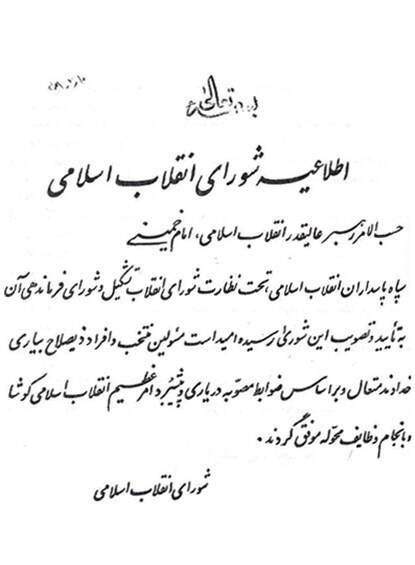 بسمه تعالی
اطلاعیه شورای انقلاب اسلامی
حسب الامر رهبر عالیقدر انقلاب اسلامی، امام خمینی
سپاه پاسداران انقلاب اسلامی، تحت نظارت شورای انقلاب تشکیل و شورای فرماندهی آن
به تأیید و تصویب این شوری رسیده امید است مسئولین منتخب و افراد ذیصلاح بیاری
خداوند متعال و براساس ضوابط مصوبه دریاری و پیشبرد امر عظیم انقلاب اسلامی کوشا
و بانجام وظایف محوله موفق گردند .
شورای انقلاب اسلامی